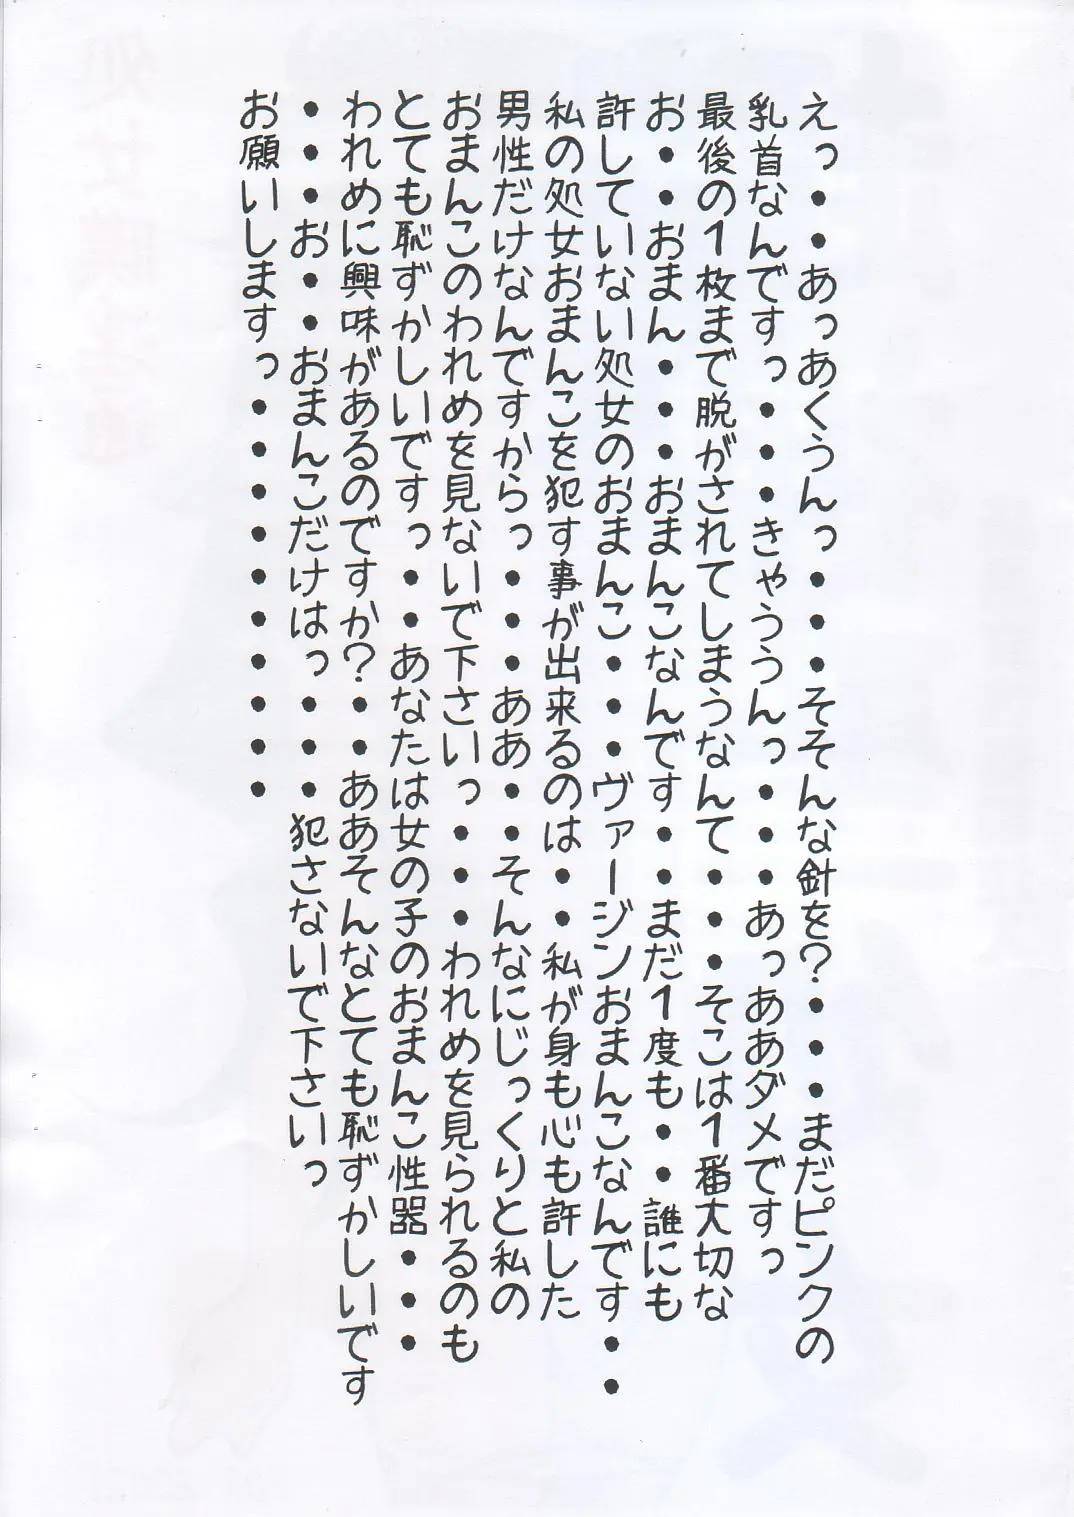 えっ・・あっあくうんっ・・・そそんな針を?・・・まだピンクの
乳首なんですっ・・・きゃううんっ・・・あっああダメですっ
最後の1枚まで脱がされてしまうなんて・・・そこは1番大切な
お・・おまん・・・おまんこなんです・・まだ1度も・・誰にも
許していない処女のおまんこ・・・ヴァージンおまんこなんです・・
私の処女おまんこを犯す事が出来るのは・・私が身も心も許した
男性だけなんですからっ・・・ああ・・そんなにじっくりと私の
おまんこのわれめを見ないで下さいっ・・・われめを見られるのも
とても恥ずかしいですっ・・あなたは女の子のおまんこ性器・・・
われめに興味があるのですか?・・ああそんなとても恥ずかしいです
・・・お・・おまんこだけはっ・・・犯さないで下さいっ
お願いしますっ・・・・・・・・・・